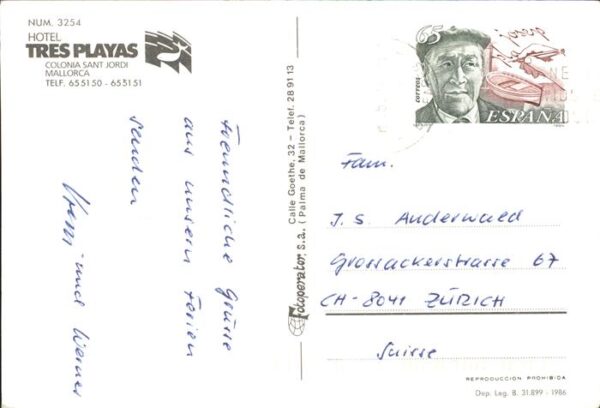 NUM. 3254
HOTEL
TRES PLAYAS
COLONIA SANT JORDI
MALLORCA
TELF. 655150 - 655151
Freundliche Grüsse
aus unsern Ferien
senden
und Werner
Fotoperator, s.a.
Calle Goethe, 32 – Telef. 28 91 13
(Palma de Mallorca)
65
correos
josep
ESPAÑA
Fam.
J. S. Anderwald
Grossackerstrasse 67
CH-8041 ZÜRICH
Suisse
REPRODUCCION PROHIBIDA
Dep. Leg. B. 31.899 - 1986